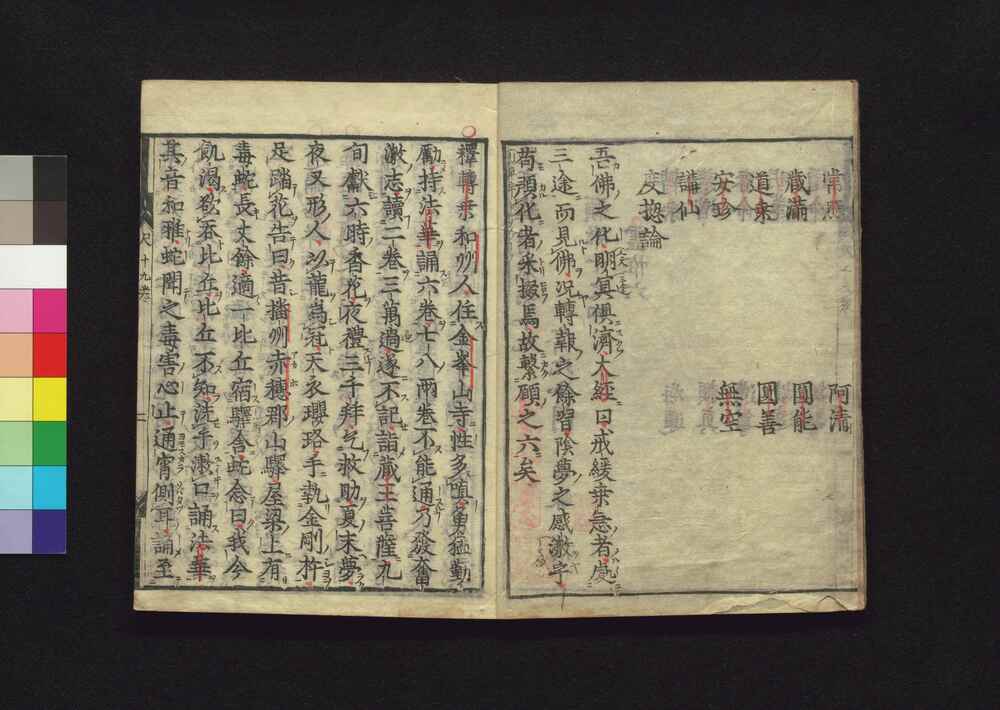 常照 阿清
蔵滿 圓能
道乗 圓善
安珍 無空
講仙
度揔論
吾佛之化明冥俱濟大經曰戒緩乗急者處
三途而見佛況轉報之餘習陰夢之感激乎
苟預化者采掇焉故繫願之六矣
釋轉乗和州人住金峯山寺性多嗔勇猛勤
勵持法華誦六卷七八兩卷不能通乃發奮
激志讀二卷三萬遍遂不記詣藏王菩薩九
旬獻六時香花夜禮三千拜乞救助夏末夢
夜叉形人以龍爲冠天衣瓔珞手執金剛杵
足踏花告曰昔播州赤穗郡山驛屋梁上有
毒蛇長丈餘適一比丘宿驛舎蛇念曰我今
飢渇欲吞比丘比丘不知洗手漱口誦法華
其音和雅蛇聞之毒害心止通宵側耳誦至
十九卷